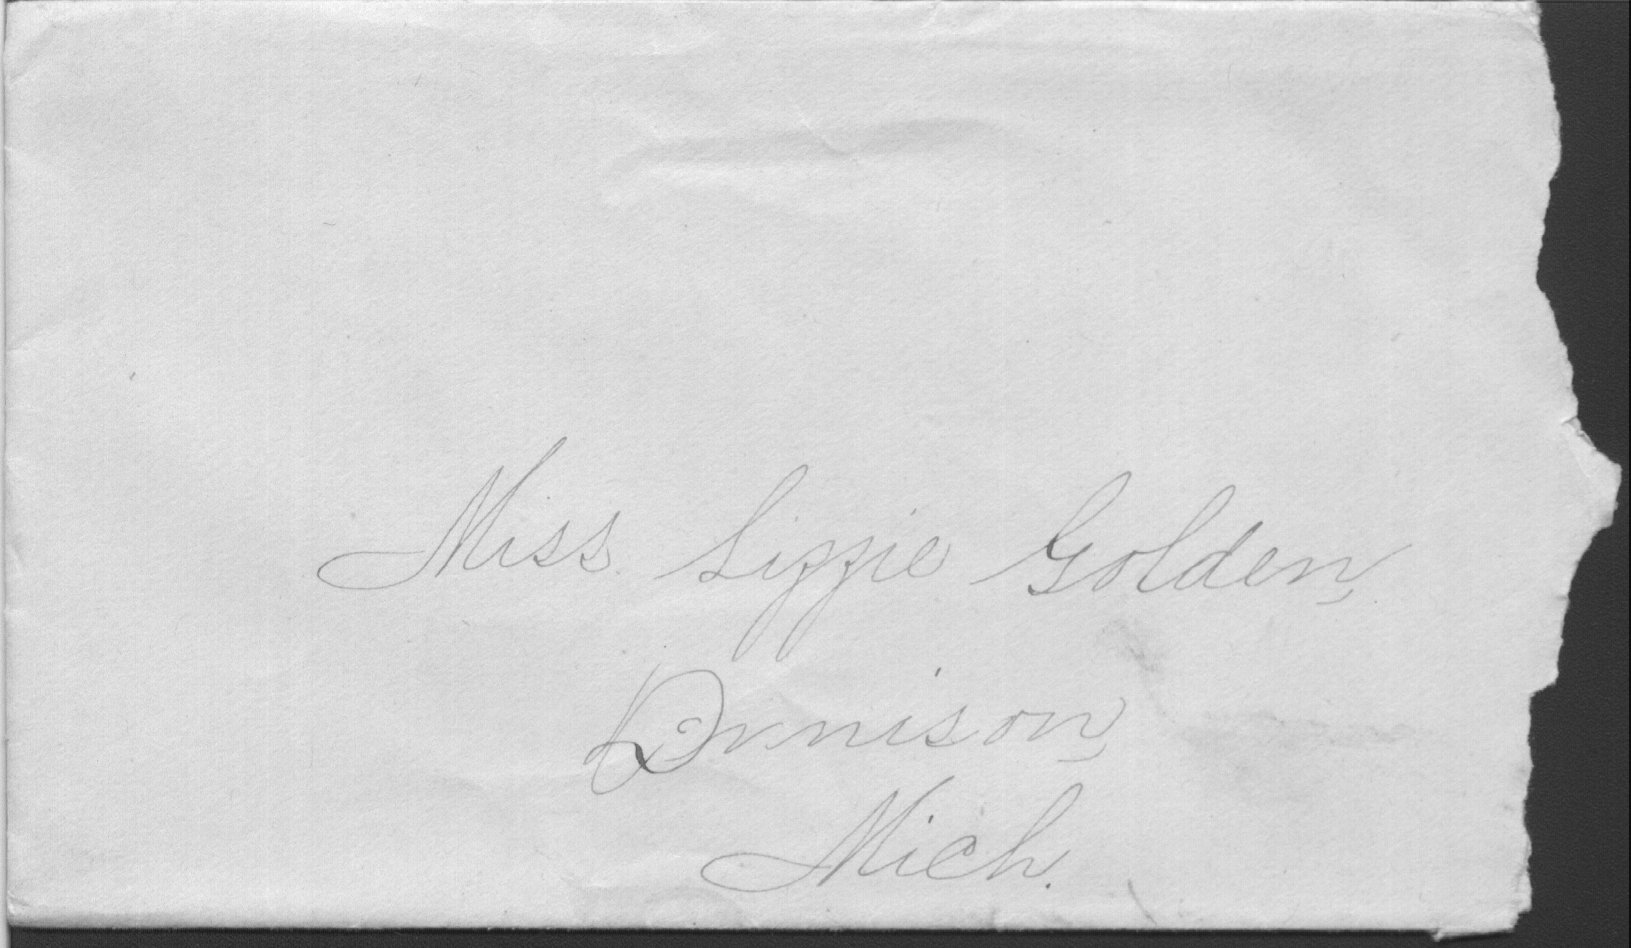 Miss Lizzie Golden,
Dennison,
Mich.